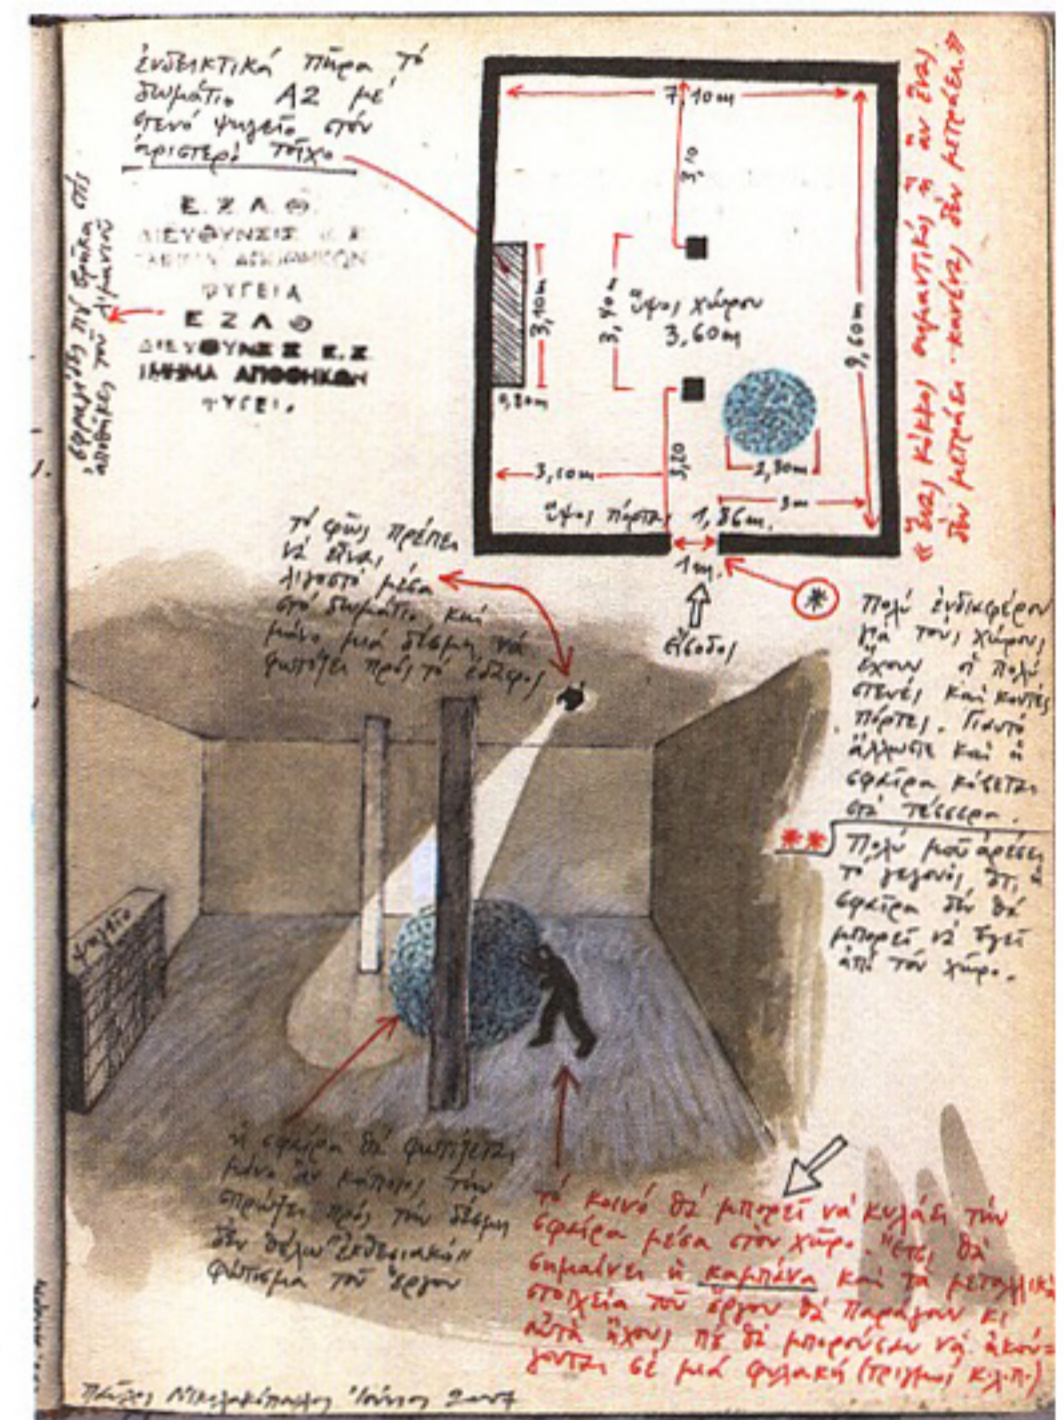 ἐνδεικτικά πῆρα τό
δωμάτιο Α2 μέ
στενό ψυγεῖο στόν
ἀριστερό τοῖχο
Ε.Ζ.Λ.Θ.
ΔΙΕΥΘΥΝΣΙΣ Ε.Ζ.
ΤΜΗΜΑ ΑΠΟΘΗΚΩΝ
ΨΥΓΕΙΑ
Ε Ζ Λ Θ
ΔΙΕΥΘΥΝΣΙΣ Ε.Ζ.
ΤΜΗΜΑ ΑΠΟΘΗΚΩΝ
ΨΥΓΕΙΑ
σφραγίδες πού βρῆκα στίς
ἀποθῆκες τοῦ λιμανιοῦ
7,10m
3,10
3,10m
3,40m
ὕψος χώρου
3,60m
9,60m
0,80m
2,30m
3,20
3,10m
3m
ὕψος πόρτας 1,86m.
1m.
εἴσοδος
*
«ἕνας κόκκος σημαντικός ἤ ἄν ἕνας
δέν μετράει - κανένας δέν μετράει.»
τό φῶς πρέπει
νά εἶναι
λιγοστό μέσα
στό δωμάτιο καί
μόνο μιά δέσμη νά
φωτίζει πρός τό ἔδαφος
Πολύ ἐνδιαφέρον
γιά τούς χώρους
ἔχουν οἱ πολύ
στενές καί κοντές
πόρτες. Γιαυτό
ἄλλωστε καί ἡ
σφαῖρα κόβεται
στά τέσσερα.
**
Πολύ μοῦ ἀρέσει
τό γεγονός ὅτι ἡ
σφαῖρα δέν θά
μπορεῖ νά βγεῖ
ἀπό τόν χῶρο.
ψυγεῖο
ἡ σφαῖρα θά φωτίζεται
μόνο ἄν κάποιος τήν
σπρώξει πρός τήν δέσμη
δέν θέλω "ἐκθεσιακό"
φώτισμα τοῦ ἔργου
τό κοινό θά μπορεῖ νά κυλάει τήν
σφαῖρα μέσα στόν χῶρο. Ἔτσι θά
σημαίνει ἡ καμπάνα καί τά μεταλλικά
στοιχεῖα τοῦ ἔργου θά παράγουν κι
αὐτά ἤχους πού θά μποροῦσαν νά ἀκού=
γονται σέ μιά φυλακή (τριγμοί κ.λ.π.)
Παῦλος Νικολακόπουλος Ἰούνιος 2007